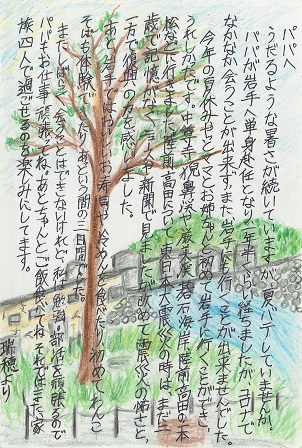 パパへ
うだるような暑さが続いていますが、夏バテしていませんか。
パパが岩手へ単身赴任となり一年半くらい経ちましたが、コロナで
なかなか会うことが出来ず、また岩手に行くことが出来ませんでした。
今年の夏休みやっとママとお姉ちゃんと初めて岩手に行くことができ、
うれしかったです。中尊寺や猊鼻渓や厳美渓、碁石海岸、陸前高田の一本
松などに行きました。陸前高田に行って東日本大震災の時は、まだ一
歳で記憶がなく、ニュースや新聞で見ましたが改めて震災の怖さと、
一方で復興の力を感じました。
あと、岩手ではおいしいお寿司や冷めんを食べたり、初めてわんこ
そばも体験できたり、あっという間の三日間でした。
まだしばらく会うことはできないけれど、私は勉強・部活を頑張るので
パパもお仕事頑張ってね。あとちゃんとご飯食べてね。それではまた家
族四人で過ごせるのを楽しみにしてます。
瑞穂より